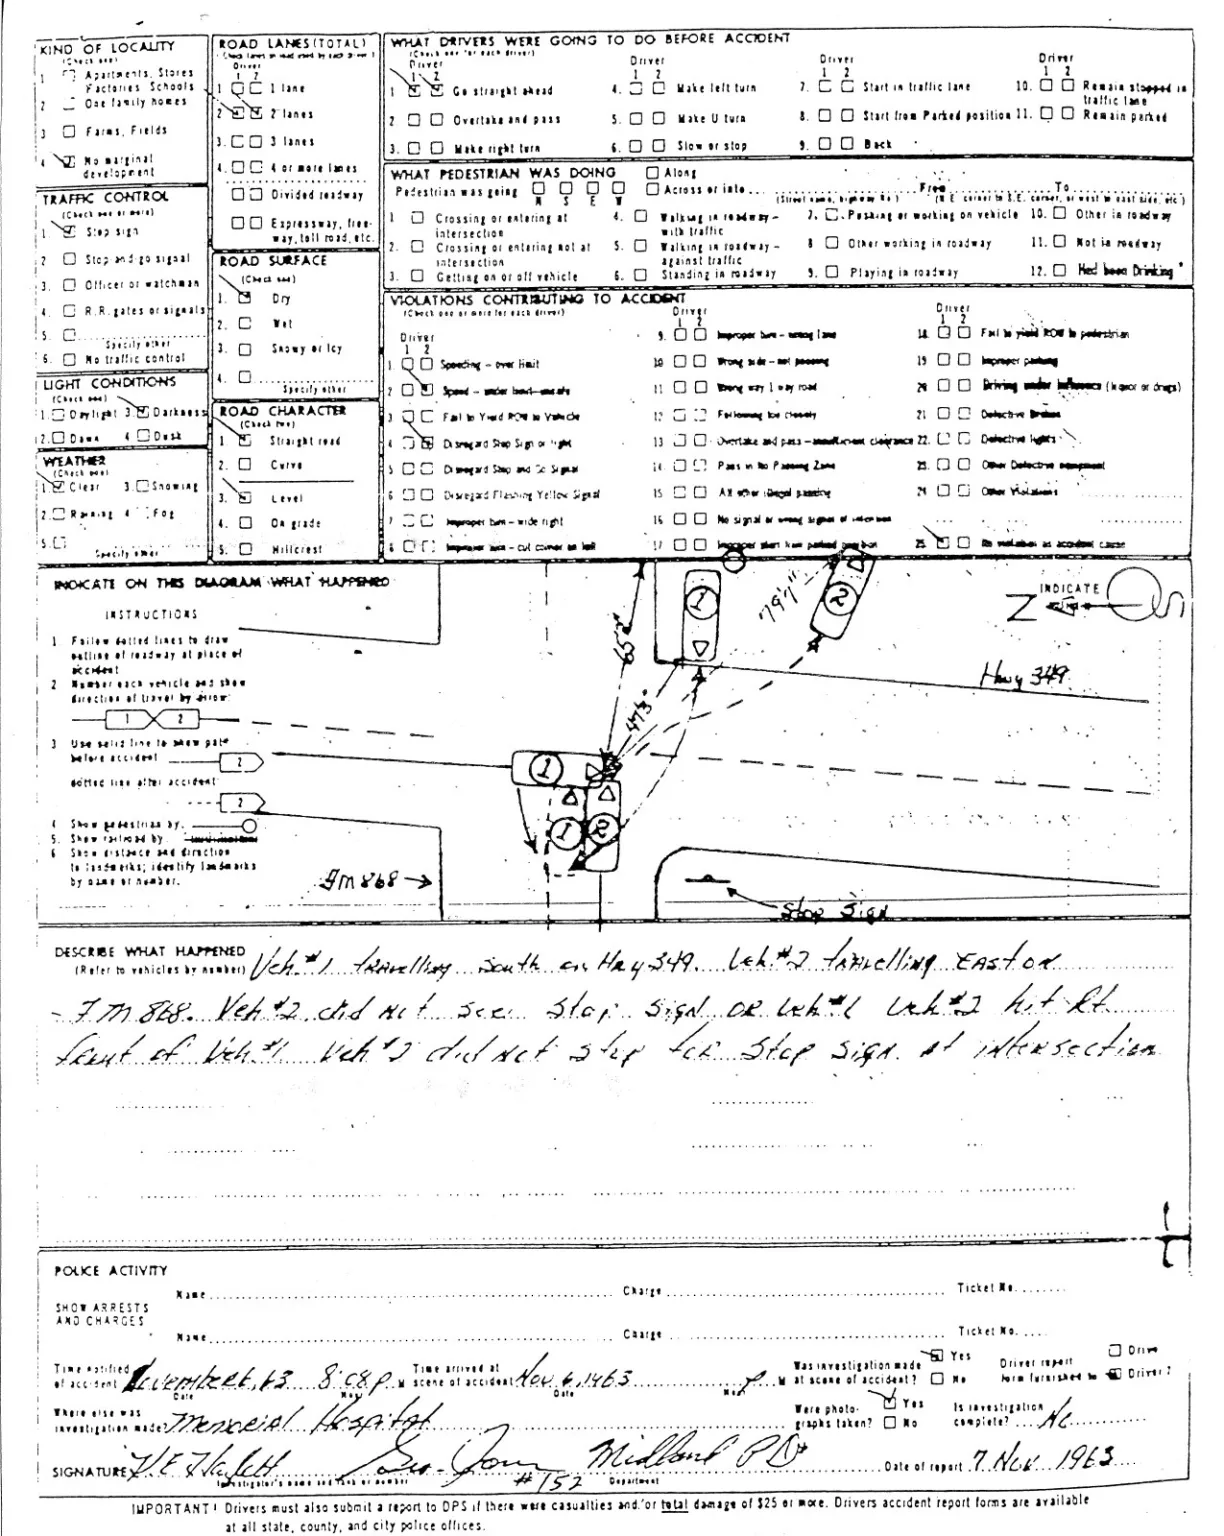 KIND OF LOCALITY
(Check one)
1 Apartments, Stores
Factories Schools
2 One family homes
3 Farms, Fields
4 No marginal
development
TRAFFIC CONTROL
(Check one or more)
1 Stop sign
2 Stop and go signal
3. Officer or watchman
4. R.R. gates or signals
5.
Specify other
6. No traffic control
LIGHT CONDITIONS
(Check one)
1. Daylight 3. Darkness
2. Dawn 4 Dusk
WEATHER
(Check one)
1 Clear 3. Snowing
2. Raining 4 Fog
5.
Specify other
ROAD LANES (TOTAL)
Driver
1 2
1 1 lane
2 2 lanes
3. 3 lanes
4. 4 or more lanes
Divided roadway
Expressway, free-
way, toll road, etc.
ROAD SURFACE
(Check one)
1. Dry
2. Wet
3. Snowy or Icy
4.
Specify other
ROAD CHARACTER
(Check two)
1. Straight road
2. Curve
3. Level
4. On grade
5. Hillcrest
WHAT DRIVERS WERE GOING TO DO BEFORE ACCIDENT
(Check one for each driver)
Driver Driver Driver Driver
1 2 1 2 1 2 1 2
1 Go straight ahead 4. Make left turn 7. Start in traffic lane 10. Remain stopped in
traffic lane
2 Overtake and pass 5. Make U turn 8. Start from Parked position 11. Remain parked
3. Make right turn 6. Slow or stop 9. Back
WHAT PEDESTRIAN WAS DOING Along
Pedestrian was going Across or into From To
N S E W (Street name, highway No.) (N.E. corner to S.E. corner, or west to east side, etc.)
1 Crossing or entering at 4. Walking in roadway - 7. Pushing or working on vehicle 10. Other in roadway
intersection with traffic
2. Crossing or entering not at 5. Walking in roadway - 8 Other working in roadway 11. Not in roadway
intersection against traffic
3. Getting on or off vehicle 6. Standing in roadway 9. Playing in roadway 12. Had been Drinking
VIOLATIONS CONTRIBUTING TO ACCIDENT
(Check one or more for each driver)
Driver Driver Driver
1 2 1 2 1 2
1 Speeding - over limit
2 Speed - under limit - unsafe
3 Fail to Yield ROW to Vehicle
4 Disregard Stop Sign or light
5 Disregard Stop and Go Signal
6 Disregard Flashing Yellow Signal
7 Improper turn - wide right
8 Improper turn - cut corner on left
9. Improper turn - wrong lane
10 Wrong side - not passing
11 Wrong way 1 way road
12 Following too closely
13 Overtake and pass - insufficient clearance
14. Pass in No Passing Zone
15 All other illegal passing
16 No signal or wrong signal of intention
17 Improper start from parked position
18 Fail to yield ROW to pedestrian
19 Improper parking
20 Driving under influence (liquor or drugs)
21 Defective Brakes
22. Defective lights
23. Other Defective equipment
24 Other Violations
25 No violation as accident cause
INDICATE ON THIS DIAGRAM WHAT HAPPENED
INSTRUCTIONS
1 Follow dotted lines to draw
outline of roadway at place of
accident
2 Number each vehicle and show
direction of travel by arrow:
1 2
3 Use solid line to show path
before accident 2
dotted line after accident:
2
4 Show pedestrian by:
5. Show railroad by
6 Show distance and direction
to landmarks; identify landmarks
by name or number.
FM 868
1
2
1
1
2
INDICATE
N S
Hwy 349
Stop Sign
DESCRIBE WHAT HAPPENED Veh. #1 travelling South on Hwy 349. Veh. #2 travelling East on
(Refer to vehicles by number)
FM 868. Veh #2 did not see Stop Sign or Veh #1 Veh #2 hit Rt
front of Veh #1 Veh #2 did not stop for Stop Sign at intersection
POLICE ACTIVITY
Name Charge Ticket No.
SHOW ARRESTS
AND CHARGES
Name Charge Ticket No.
Time notified Time arrived at Was investigation made Yes Driver report Driver 1
of accident November 6, 63 8:08 P M scene of accident Nov 6, 1963 P M at scene of accident? No form furnished to Driver 2
Date Hour Date
Where else was Were photo- Yes Is investigation
investigation made? Memorial Hospital graphs taken? No complete? No
SIGNATURE Midland PD Date of report 7 Nov 1963
Investigator's name and rank or number #152 Department
IMPORTANT! Drivers must also submit a report to DPS if there were casualties and/or total damage of $25 or more. Drivers accident report forms are available
at all state, county, and city police offices.